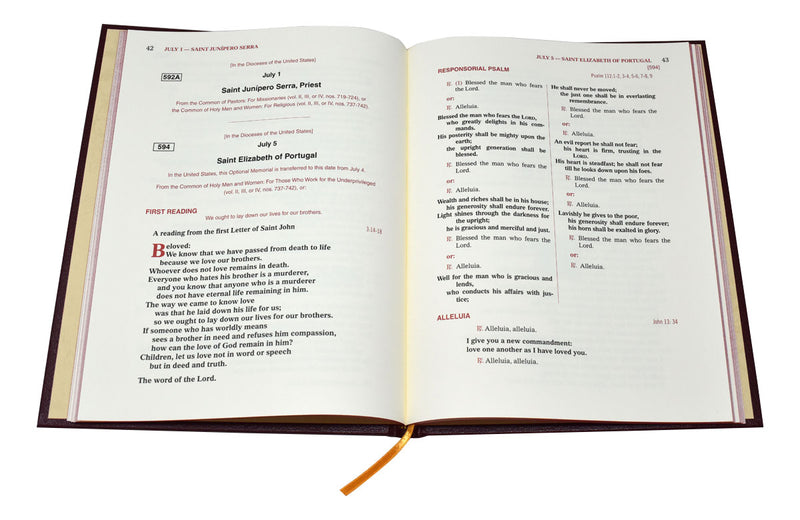 42 JULY 1 — SAINT JUNÍPERO SERRA
[In the Dioceses of the United States]
592A
July 1
Saint Junípero Serra, Priest
From the Common of Pastors: For Missionaries (vol. II, III, or IV, nos. 719-724), or
the Common of Holy Men and Women: For Religious (vol. II, III, or IV, nos. 737-742).
[In the Dioceses of the United States]
594
July 5
Saint Elizabeth of Portugal
In the United States, this Optional Memorial is transferred to this date from July 4.
From the Common of Holy Men and Women: For Those Who Work for the Underprivileged
(vol. II, III, or IV, nos. 737-742), or:
FIRST READING
We ought to lay down our lives for our brothers.
A reading from the first Letter of Saint John 3:14-18
Beloved:
We know that we have passed from death to life
because we love our brothers.
Whoever does not love remains in death.
Everyone who hates his brother is a murderer,
and you know that anyone who is a murderer
does not have eternal life remaining in him.
The way we came to know love
was that he laid down his life for us;
so we ought to lay down our lives for our brothers.
If someone who has worldly means
sees a brother in need and refuses him compassion,
how can the love of God remain in him?
Children, let us love not in word or speech
but in deed and truth.
The word of the Lord.
JULY 5 — SAINT ELIZABETH OF PORTUGAL 43
[594]
RESPONSORIAL PSALM
Psalm 112:1-2, 3-4, 5-6, 7-8, 9
℟. (1) Blessed the man who fears
the Lord.
or:
℟. Alleluia.
Blessed the man who fears the LORD,
who greatly delights in his com-
mands.
His posterity shall be mighty upon the
earth;
the upright generation shall be
blessed.
℟. Blessed the man who fears the
Lord.
or:
℟. Alleluia.
Wealth and riches shall be in his house;
his generosity shall endure forever.
Light shines through the darkness for
the upright;
he is gracious and merciful and just.
℟. Blessed the man who fears the
Lord.
or:
℟. Alleluia.
Well for the man who is gracious and
lends,
who conducts his affairs with jus-
tice;
He shall never be moved;
the just one shall be in everlasting
remembrance.
℟. Blessed the man who fears the
Lord.
or:
℟. Alleluia.
An evil report he shall not fear;
his heart is firm, trusting in the
LORD.
His heart is steadfast; he shall not fear
till he looks down upon his foes.
℟. Blessed the man who fears the
Lord.
or:
℟. Alleluia.
Lavishly he gives to the poor,
his generosity shall endure forever;
his horn shall be exalted in glory.
℟. Blessed the man who fears the
Lord.
or:
℟. Alleluia.
ALLELUIA
John 13:34
℟. Alleluia, alleluia.
I give you a new commandment:
love one another as I have loved you.
℟. Alleluia, alleluia.